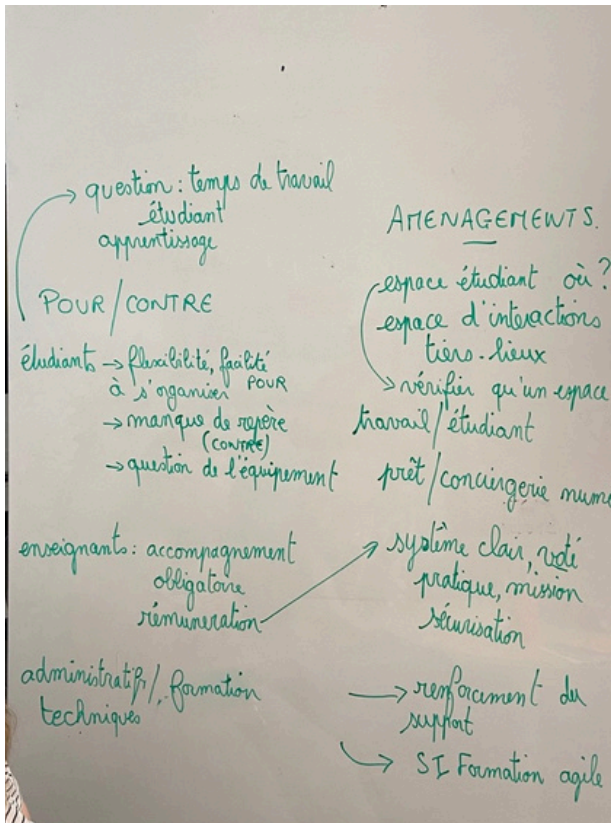 question : temps de travail
étudiant
apprentissage
POUR / CONTRE
étudiants → flexibilité, facilité
à s'organiser POUR
→ manque de repère
(CONTRE)
→ question de l'équipement
enseignants : accompagnement
obligatoire
rémuneration
administratifs / formation
techniques
AMENAGEMENTS.
espace étudiant où ?
espace d'interactions
tiers-lieux
→ vérifier qu'un espace
travail / étudiant
prêt / conciergerie nume
système clair, voté
pratique, mission
sécurisation
→ renforcement du
support
→ SI Formation agile